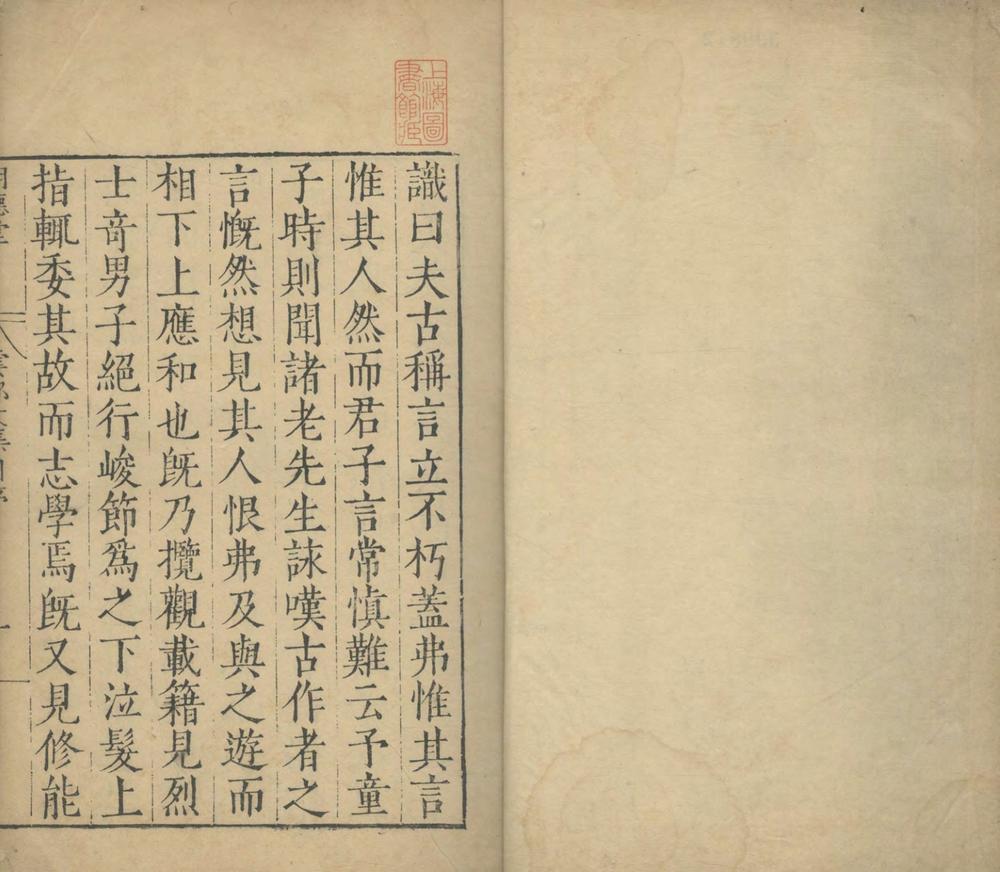 上海圖
書館藏
識曰夫古稱言立不朽蓋弗惟其言
惟其人然而君子言常慎難云予童
子時則聞諸老先生詠嘆古作者之
言慨然想見其人恨弗及與之遊而
相下上應和也旣乃攬觀載籍見烈
士奇男子絕行峻節爲之下泣髮上
指輒委其故而志學焉旣又見修能